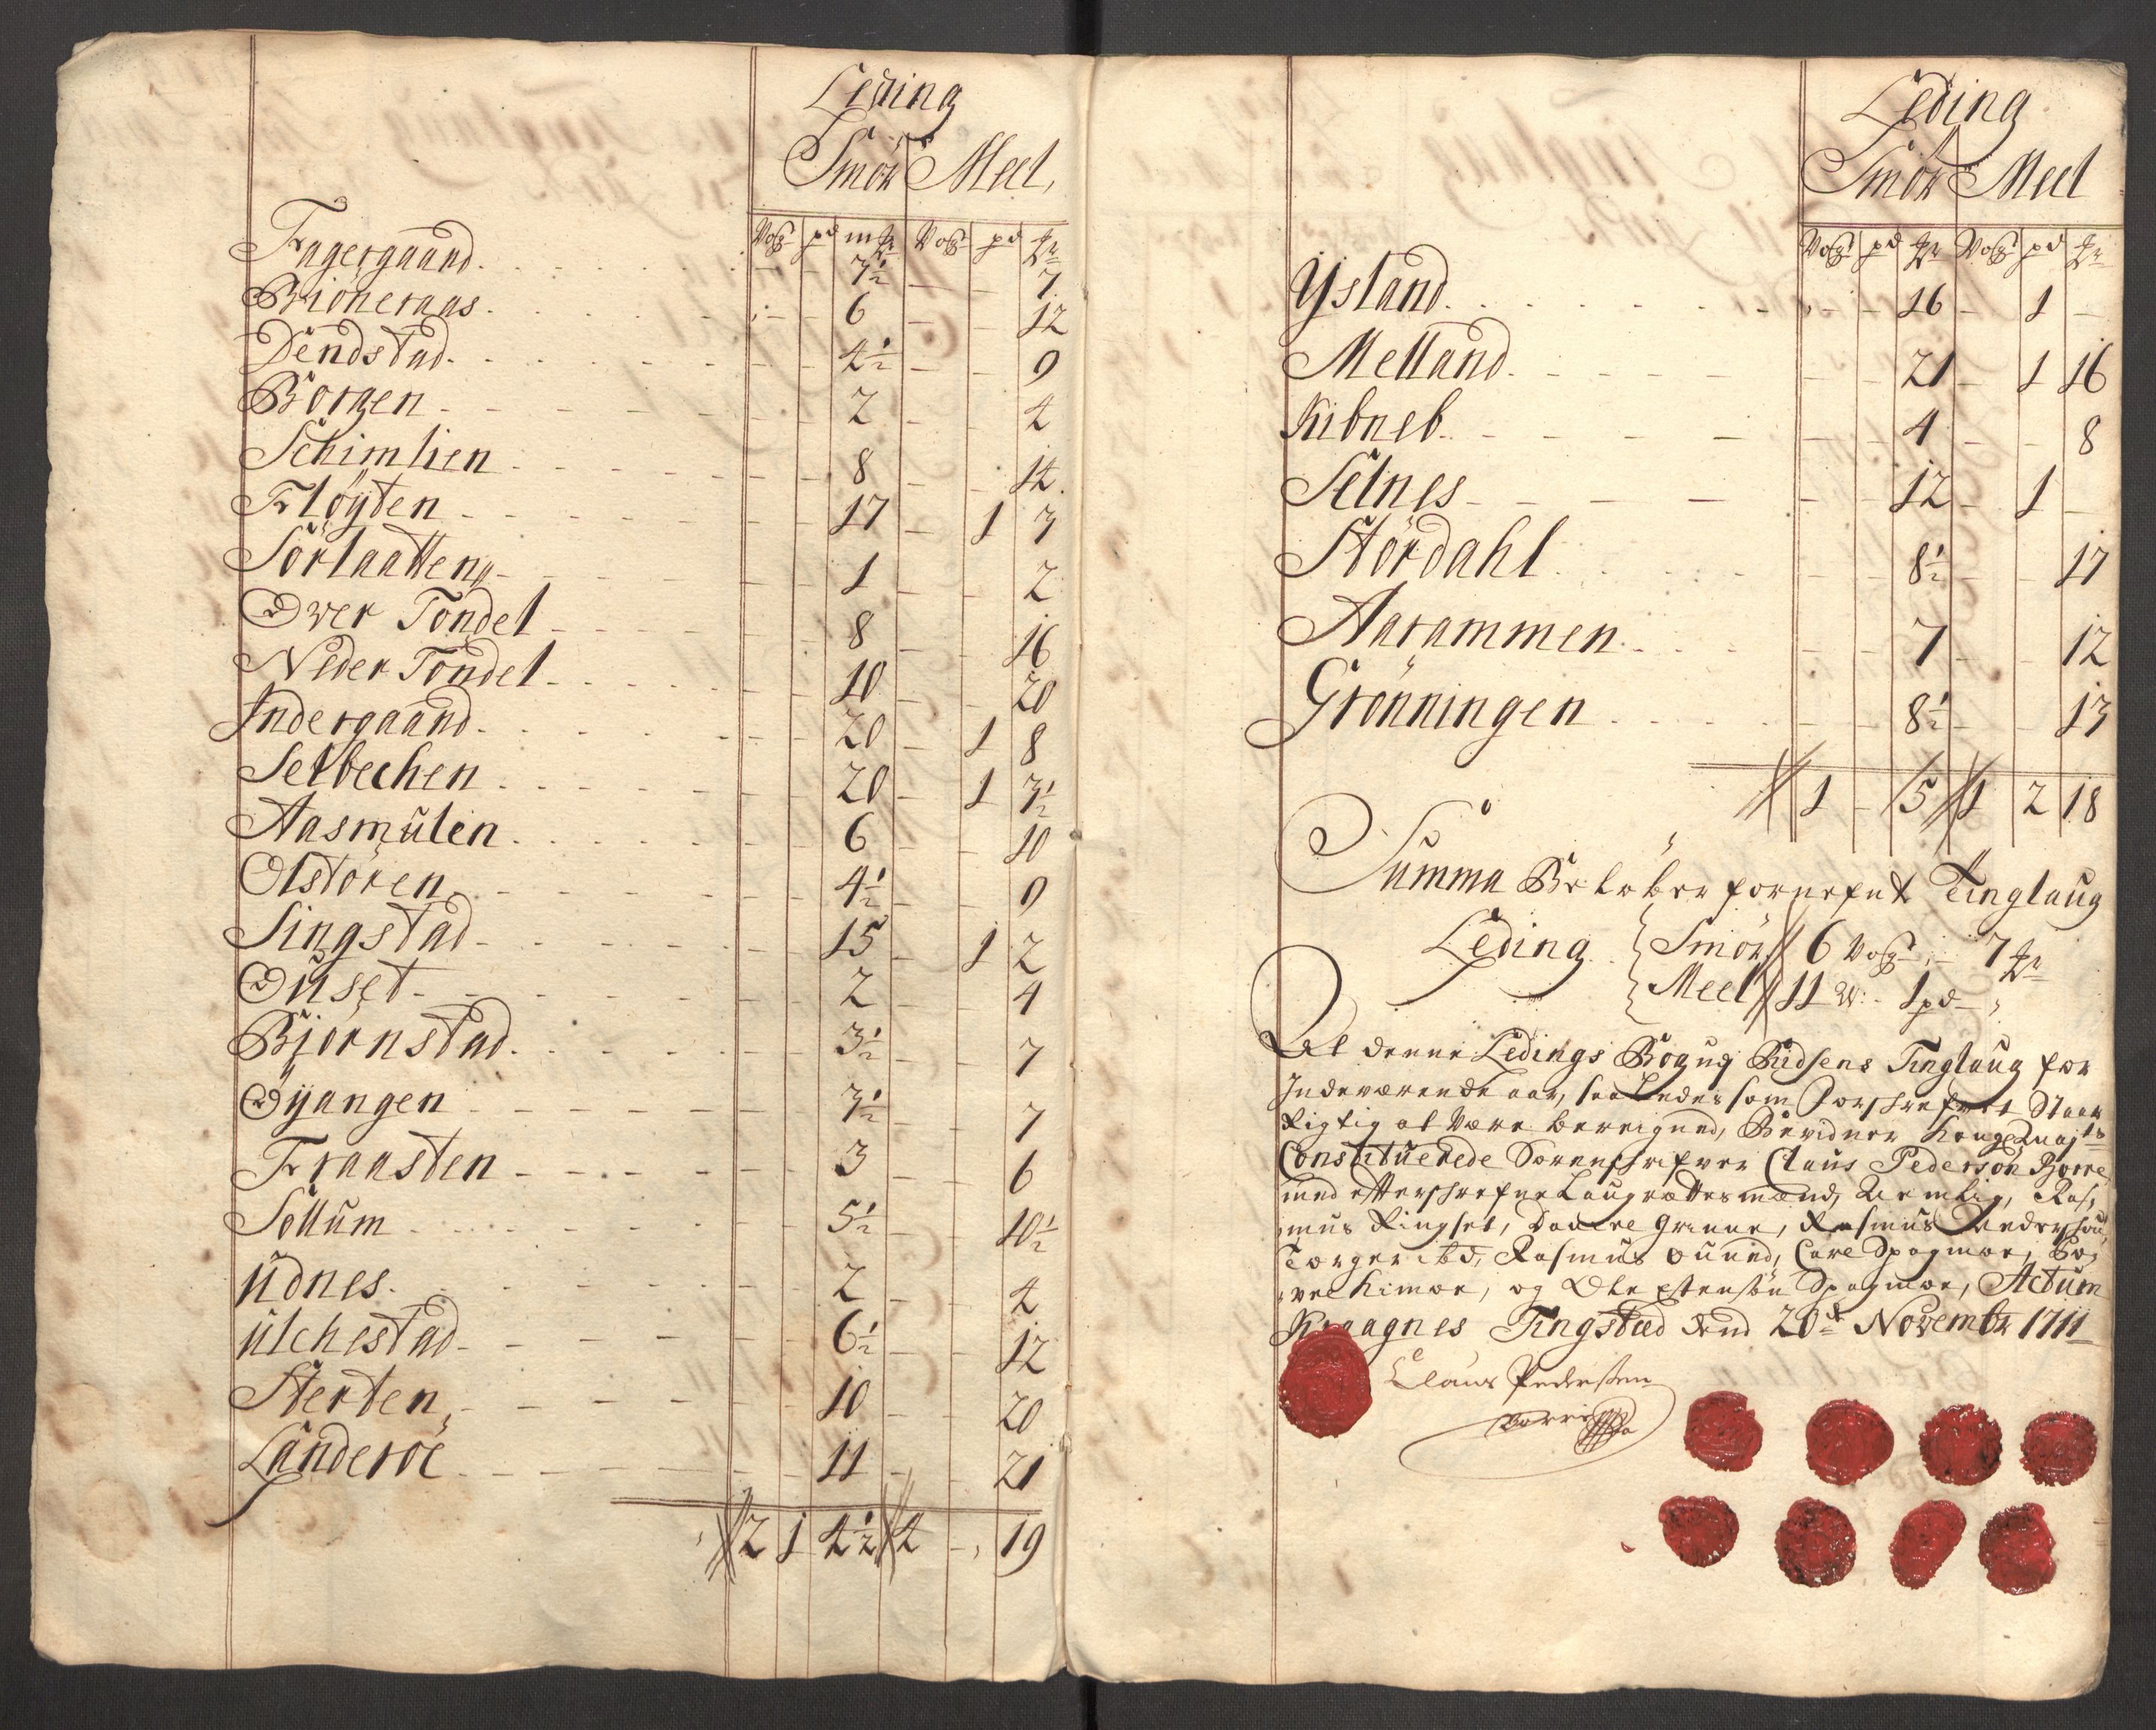 Leding
Smör Meel,
Vog pd mk Vog pd mk
Fagergaard. 7½ 7
Brioneraas. 6 12
Dendstad. 4½ 9
Borgen 2 4
Schimlien 8 14
Fløyten 17 1 3
Sörlaatteng 1 2
Over Tondel 8 16
Neder Tondel 10 20
Indergaard. 20 1 8
Selbechen 20 1 3½
Aasmülen 6 10
Olstören 4½ 9
Singstad 15 1 2
Ouset 2 4
Bjørnstad. 3½ 7
Öyangen 3½ 7
Fraasten 3 6
Sollum 5½ 10½
Udnes. 2 4
Ulchestad 6½ 12
Sterten 10 20
Landeröe 11 21
2 1 4½ 4 - 19
Leding
Smör Meel
Vog pd mk Vog pd mk
Ysland. 16 1 -
Melland. 21 1 16
Kibneb. 4 8
Selnes 12 1
Stördahl 8½ 17
Aarammen. 7 12
Grönningen 8½ 13
1 - 5 1 2 18
Summa Beløber fornefnt Tinglaug
Leding. Smör 6 Vog - 7 mk
Meel 11 W: 1 pd -
At denne Ledings Bog udj Bidsens Tinglaug for
Indeværende aar, saaledes som Forschrefvet Staar
Rigtig at Være bereigned, Bevidner Kongl Mayts
Constituerede Sorenschrifver Claus Pederson Borre
med efterschrefne Laugrettesmænd, Nemlig, Ras,
mus Ringset, Grinne, Rasmus
Torger ibd, Rasmus
og Ole Actum
Kraagnes Tingsted dend 20de Novembr 1711
Claus Pedersen
Borre